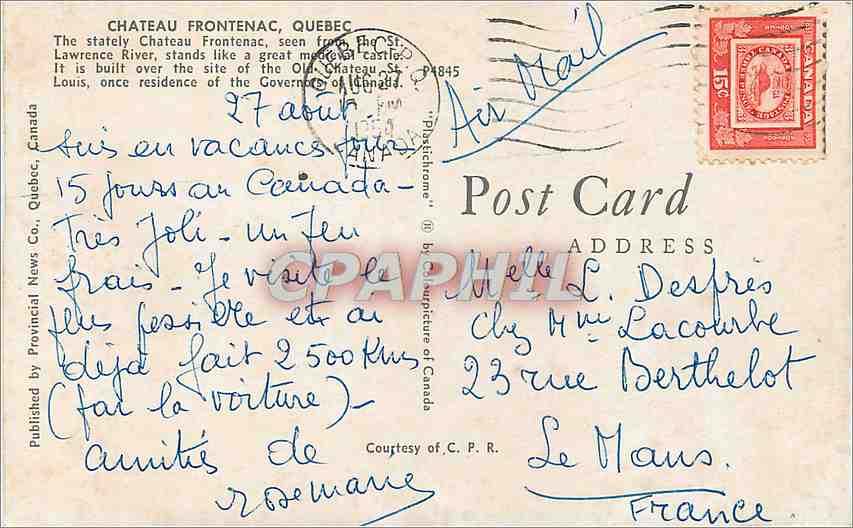 CHATEAU FRONTENAC, QUEBEC
The stately Chateau Frontenac, seen from the St.
Lawrence River, stands like a great medieval castle.
It is built over the site of the Old Chateau St.
Louis, once residence of the Governors of Canada.
P4845
27 août
suis en vacances pour
15 jours au Canada-
Très Joli - un peu
frais - Je visite le
plus possible et ai
déjà fait 2500 Kms
(par la voiture)-
amitiés de
rosemarie
Published by Provincial News Co., Quebec, Canada
"Plastichrome" ® by Colourpicture of Canada
Air Mail
15¢
CANADA
Post Card
ADDRESS
Melle L. Desprès
chez Mme Lacourbe
23 rue Berthelot
Le Mans.
France
Courtesy of C. P. R.
CPAPHIL